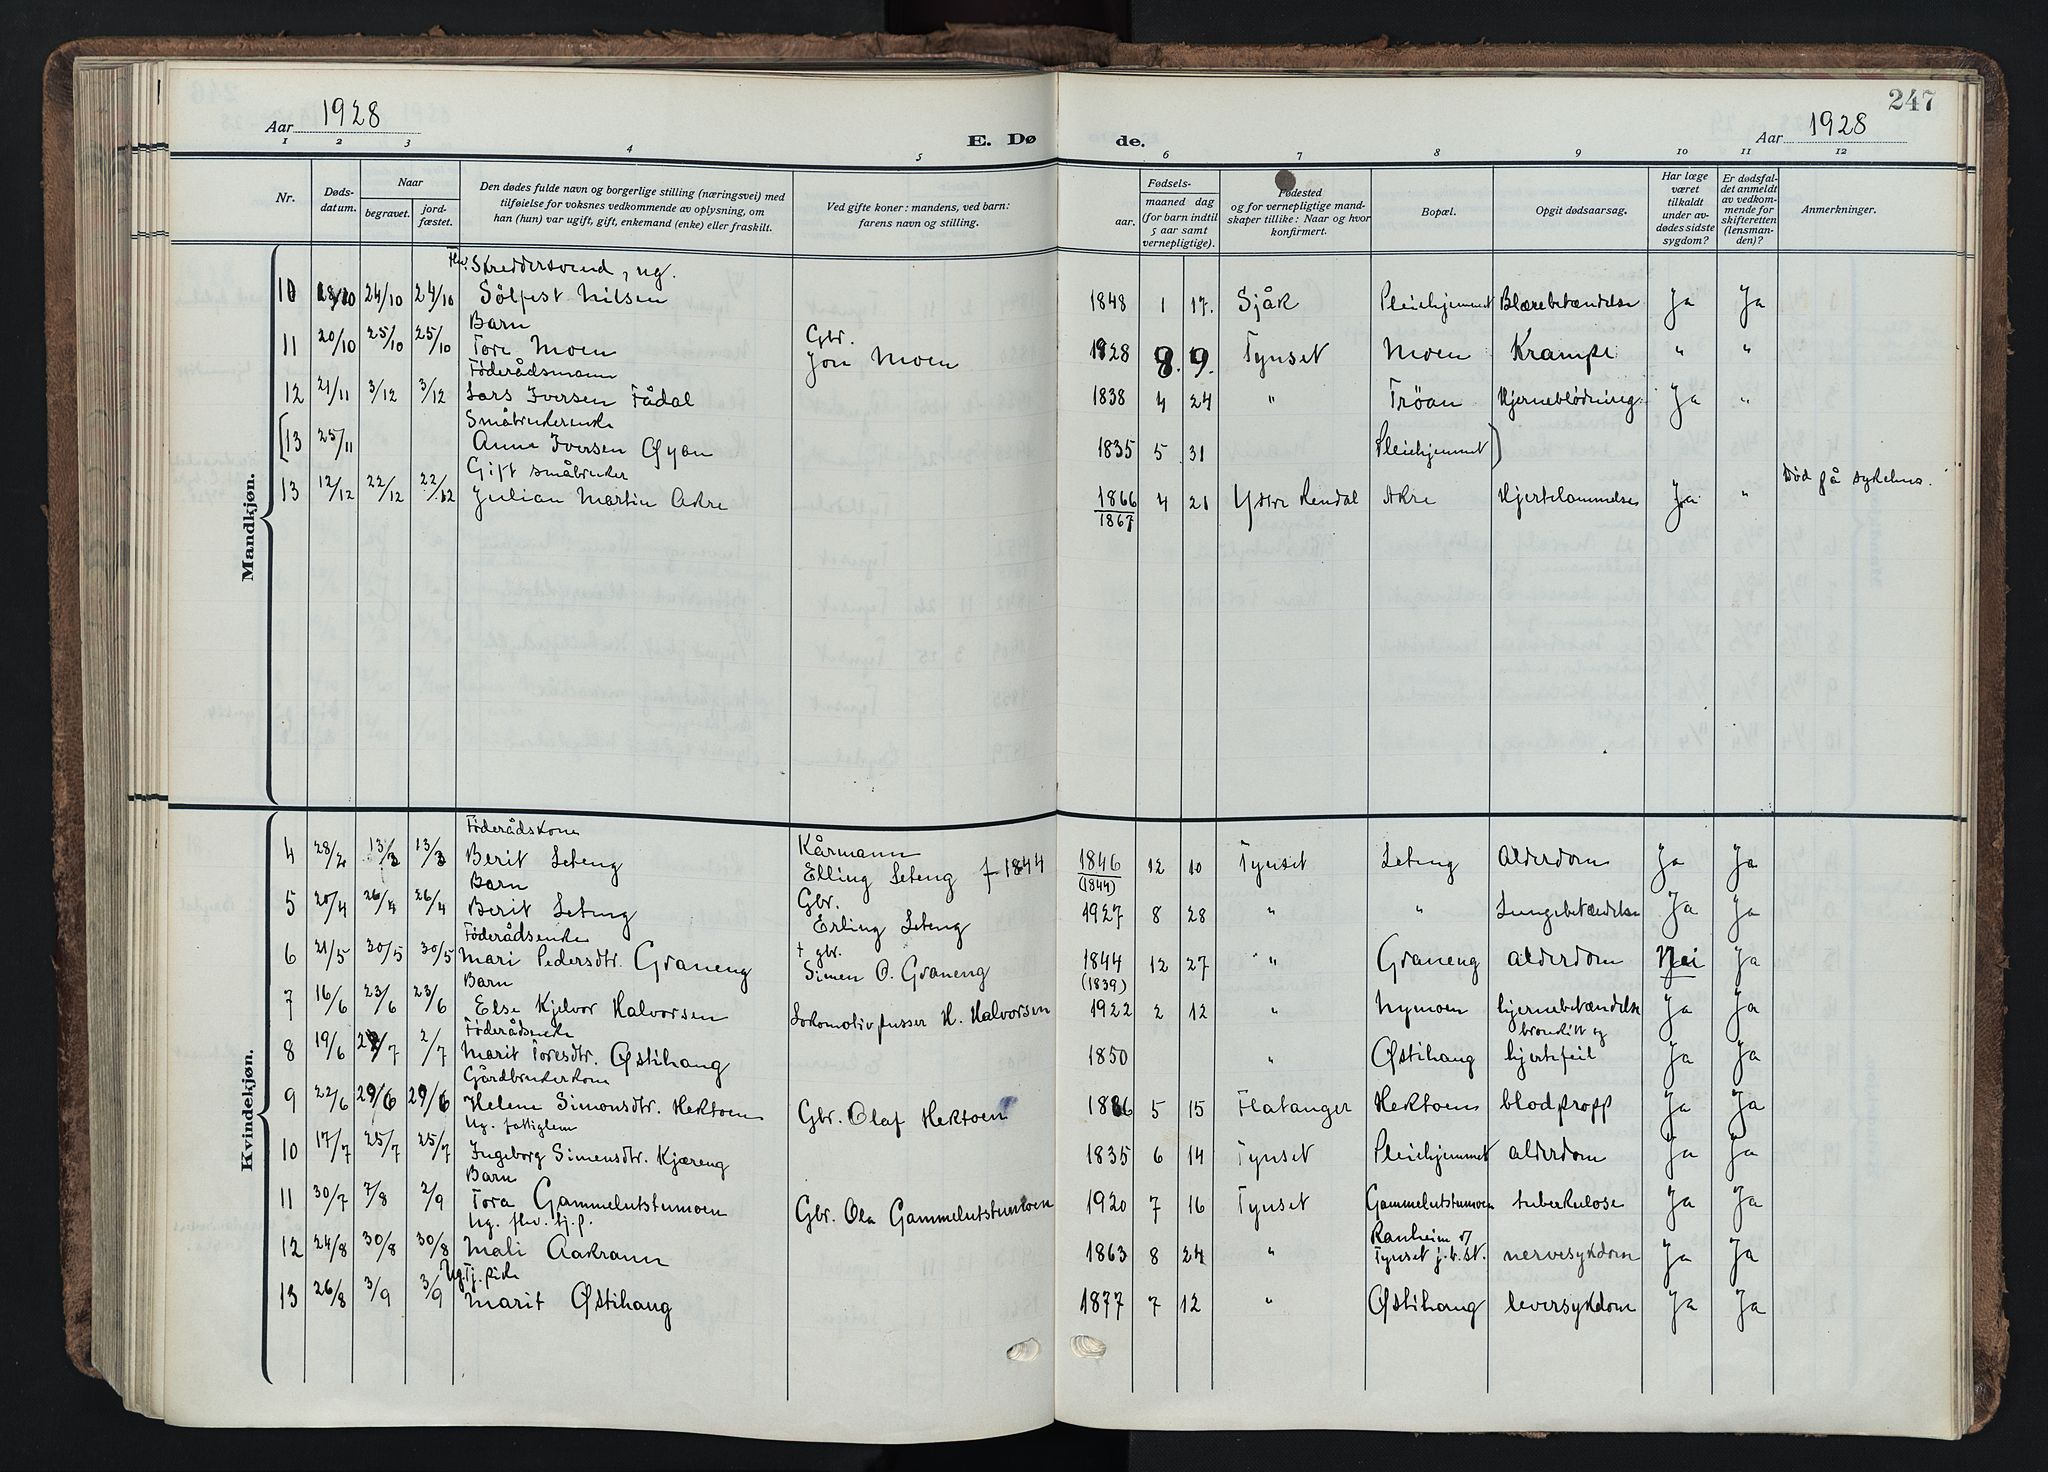 247
Aar 1928
E. Dø de.
Aar 1928
1 2 3 4 5 6 7 8 9 10 11 12
Nr.
Dødsdatum.
Naar
begravet.
jordfæstet.
Den dødes fulde navn og borgerlige stilling (næringsvei) med
tilføielse for voksnes vedkommende av oplysning, om
han (hun) var ugift, gift, enkemand (enke) eller fraskilt.
Ved gifte koner: mandens, ved barn:
farens navn og stilling.
Fødsels-
aar.
maaned dag
(for barn indtil
5 aar samt
vernepligtige).
Fødested
og for vernepligtige mandskaper tillike: Naar og hvor
konfirmert.
Bopæl.
Opgit dødsaarsag.
Har læge
været
tilkaldt
under avdødes sidste
sygdom?
Er dødsfaldet anmeldt
av vedkommende for
skifteretten
(lensmanden)?
Anmerkninger.
Mandkjøn.
Fhv. Skreddersvend, ug.
10 18/10 24/10 24/10 Sølfest Nilsen 1848 1 17. Sjåk Pleiehjemmet Blærebetændelse Ja Ja
Barn Gbr.
11 20/10 25/10 25/10 Tore Moen Jon Moen 1928 8. 9. Tynset Moen Krampe " "
Föderådsmann
12 21/11 3/12 3/12 Lars Iversen Fådal 1838 4 24 " Trøan Hjerneblødning Ja "
Småbrukerenke
[13 25/11 Anne Iversen Øyan 1835 5 31 Pleiehjemmet)
Gift småbruker
13 12/12 22/12 22/12 Julian Martin Akre 1866 4 21 Ystre Rendal Akre Hjertelammelse Ja " Död på sykehus.
1867
Kvindekjøn.
Föderådskone Kårmann
4 28/2 13/3 13/3 Berit Leteng Elling Leteng f 1844 1846 12 10 Tynset Leteng Alderdom Ja Ja
(1844)
Barn Gbr.
5 20/4 26/4 26/4 Berit Leteng Erling Leteng 1927 8 28 " " Lungebetændelse Ja Ja
Föderådsenke + gbr.
6 21/5 30/5 30/5 Mari Pedersdtr. Graneng Simen O. Graneng 1844 12 27 " Graneng alderdom Nei Ja
(1839)
Barn
7 16/6 23/6 23/6 Else Kjelvor Halvorsen Lokomotivpusser H. Halvorsen 1922 2 12 " Nymoen hjernebetændelse Ja Ja
Föderådsenke bronkitt og
8 19/6 2/7 2/7 Marit Toresdtr. Østihaug 1850 " Østihaug hjertefeil Ja Ja
Gårdbrukerkone
9 22/6 29/6 29/6 Helene Simonsdtr. Hektoen Gbr. Olaf Hektoen 1886 5 15 Flatanger Hektoen blodpropp Ja Ja
Ug. fattiglem
10 17/7 25/7 25/7 Ingeborg Simensdtr. Kjæreng 1835 6 14 Tynset Pleiehjemmet alderdom Ja Ja
Barn
11 30/7 7/8 2/9 Tora Gammelutstumoen Gbr. Ola Gammelutstumoen 1920 7 16 Tynset Gammelutstumoen tuberkulose Ja Ja
Ug. fhv. tj.p. Ranheim v/
12 24/8 30/8 30/8 Mali Aakrann 1863 8 24 " Tynset j.b.st. nervesykdom Ja Ja
Ug. Tj. pike
13 26/8 3/9 3/9 Marit Østihaug 1877 7 12 " Østihaug leversykdom Ja Ja